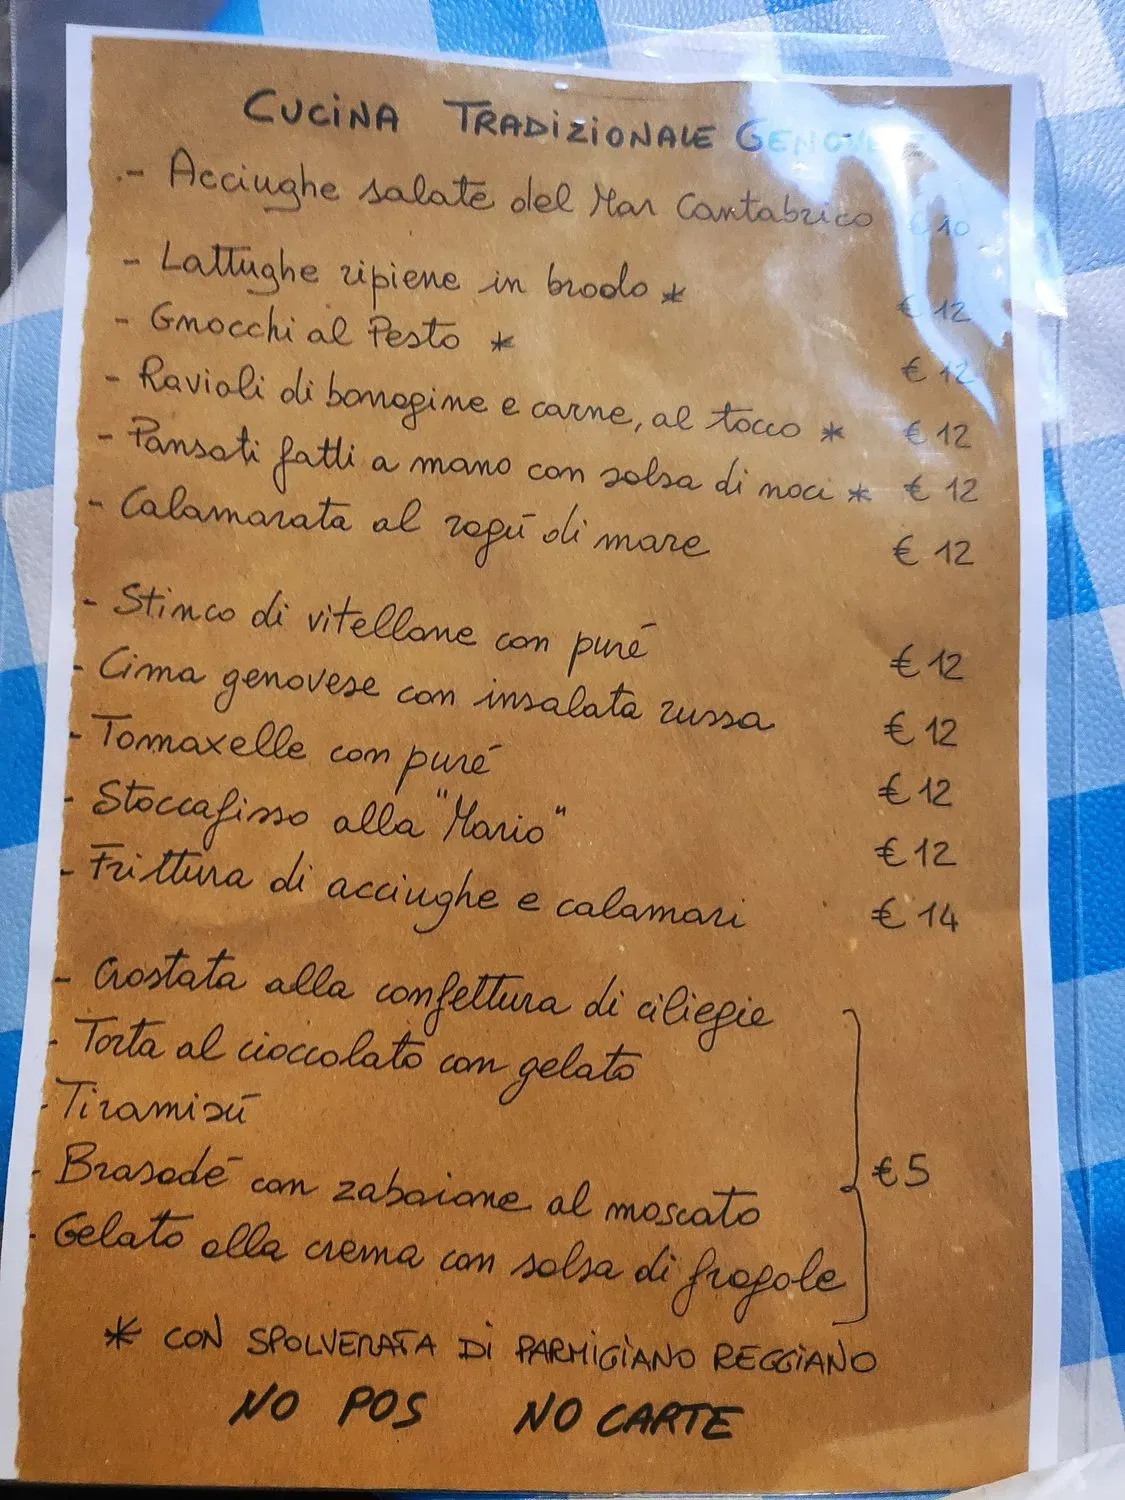 CUCINA TRADIZIONALE GENOVESE
- Acciughe salate del Mar Cantabrico € 10
- Lattughe ripiene in brodo * € 12
- Gnocchi al Pesto * € 12
- Ravioli di borragine e carne, al tocco * € 12
- Pansoti fatti a mano con salsa di noci * € 12
- Calamarata al ragù di mare € 12
- Stinco di vitellone con puré € 12
- Cima genovese con insalata russa € 12
- Tomaxelle con puré € 12
- Stoccafisso alla "Mario" € 12
- Frittura di acciughe e calamari € 14
- Crostata alla confettura di ciliegie
- Torta al cioccolato con gelato
- Tiramisù
- Brasadè con zabaione al moscato € 5
- Gelato alla crema con salsa di fragole
* CON SPOLVERATA DI PARMIGIANO REGGIANO
NO POS NO CARTE